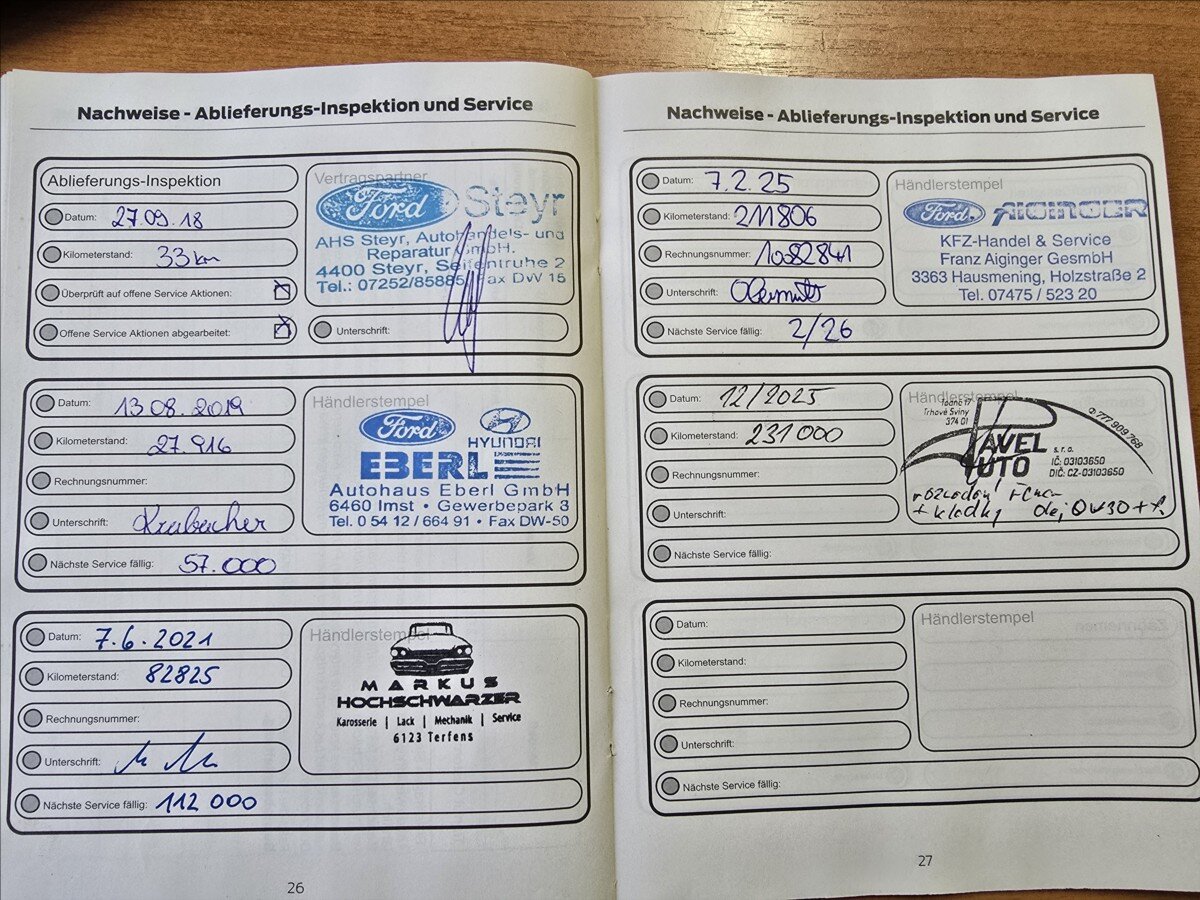 Nachweise - Ablieferungs-Inspektion und Service
Ablieferungs-Inspektion
Datum: 27.09.18
Kilometerstand: 33 km
Überprüft auf offene Service Aktionen:
Offene Service Aktionen abgearbeitet:
Vertragspartner
Ford Steyr
AHS Steyr, Autohandels- und
Reparatur GmbH.
4400 Steyr, Seifentruhe 2
Tel.: 07252/85885, Fax DW 15
Unterschrift:
Datum: 13 08. 2019
Kilometerstand: 27.916
Rechnungsnummer:
Unterschrift:
Nächste Service fällig: 57.000
Händlerstempel
Ford HYUNDAI
EBERL
Autohaus Eberl GmbH
6460 Imst • Gewerbepark 3
Tel. 0 54 12 / 664 91 • Fax DW-50
Datum: 7.6.2021
Kilometerstand: 82825
Rechnungsnummer:
Unterschrift:
Nächste Service fällig: 112 000
Händlerstempel
MARKUS
HOCHSCHWARZER
Karosserie | Lack | Mechanik | Service
6123 Terfens
26
Nachweise - Ablieferungs-Inspektion und Service
Datum: 7.2.25
Kilometerstand: 211806
Rechnungsnummer: 10082841
Unterschrift:
Nächste Service fällig: 2/26
Händlerstempel
Ford AIGINGER
KFZ-Handel & Service
Franz Aiginger GesmbH
3363 Hausmening, Holzstraße 2
Tel. 07475 / 523 20
Datum: 12/2025
Kilometerstand: 231 000
Rechnungsnummer:
Unterschrift:
Nächste Service fällig:
Händlerstempel
Trhové Sviny
374 01
PAVEL
AUTO s.r.o.
IČ: 03103650
DIČ: CZ-03103650
777 909 768
+ kladky
Datum:
Kilometerstand:
Rechnungsnummer:
Unterschrift:
Nächste Service fällig:
Händlerstempel
27